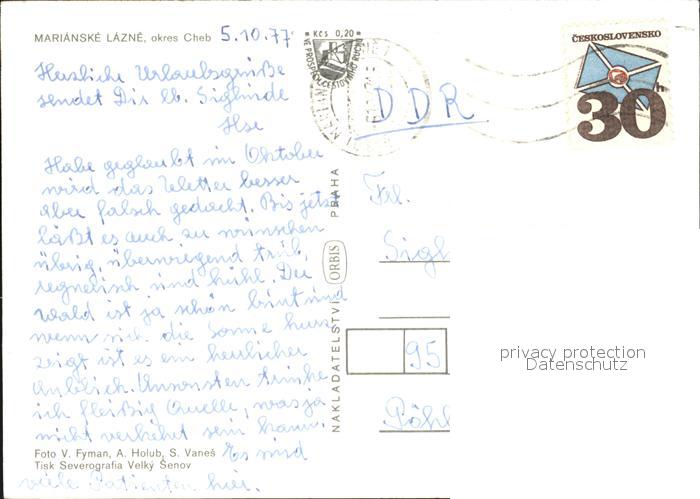 MARIÁNSKÉ LÁZNĚ, okres Cheb 5.10.77
Herzliche Urlaubsgrüße
sendet Dir lb. Sieglinde
Ilse
Habe geglaubt im Oktober
wird das Wetter besser
aber falsch gedacht. Bis jetzt
läßt es auch zu wünschen
übrig, überwiegend trüb,
regnerisch und kühl. Der
Wald ist ja schön bunt und
wenn sich die Sonne kurz
zeigt ist es ein herrlicher
Anblick. Ansonsten trinke
ich fleißig Quelle, was ja
nicht verkehrt sein kann.
Es sind
viele Patienten hier.
Foto V. Fyman, A. Holub, S. Vaneš
Tisk Severografia Velký Šenov
NAKLADATELSTVÍ ORBIS PRAHA
Kčs 0,20
ČESKOSLOVENSKO
30h
DDR
Frl.
Sigl
95
Pöhl
privacy protection
Datenschutz